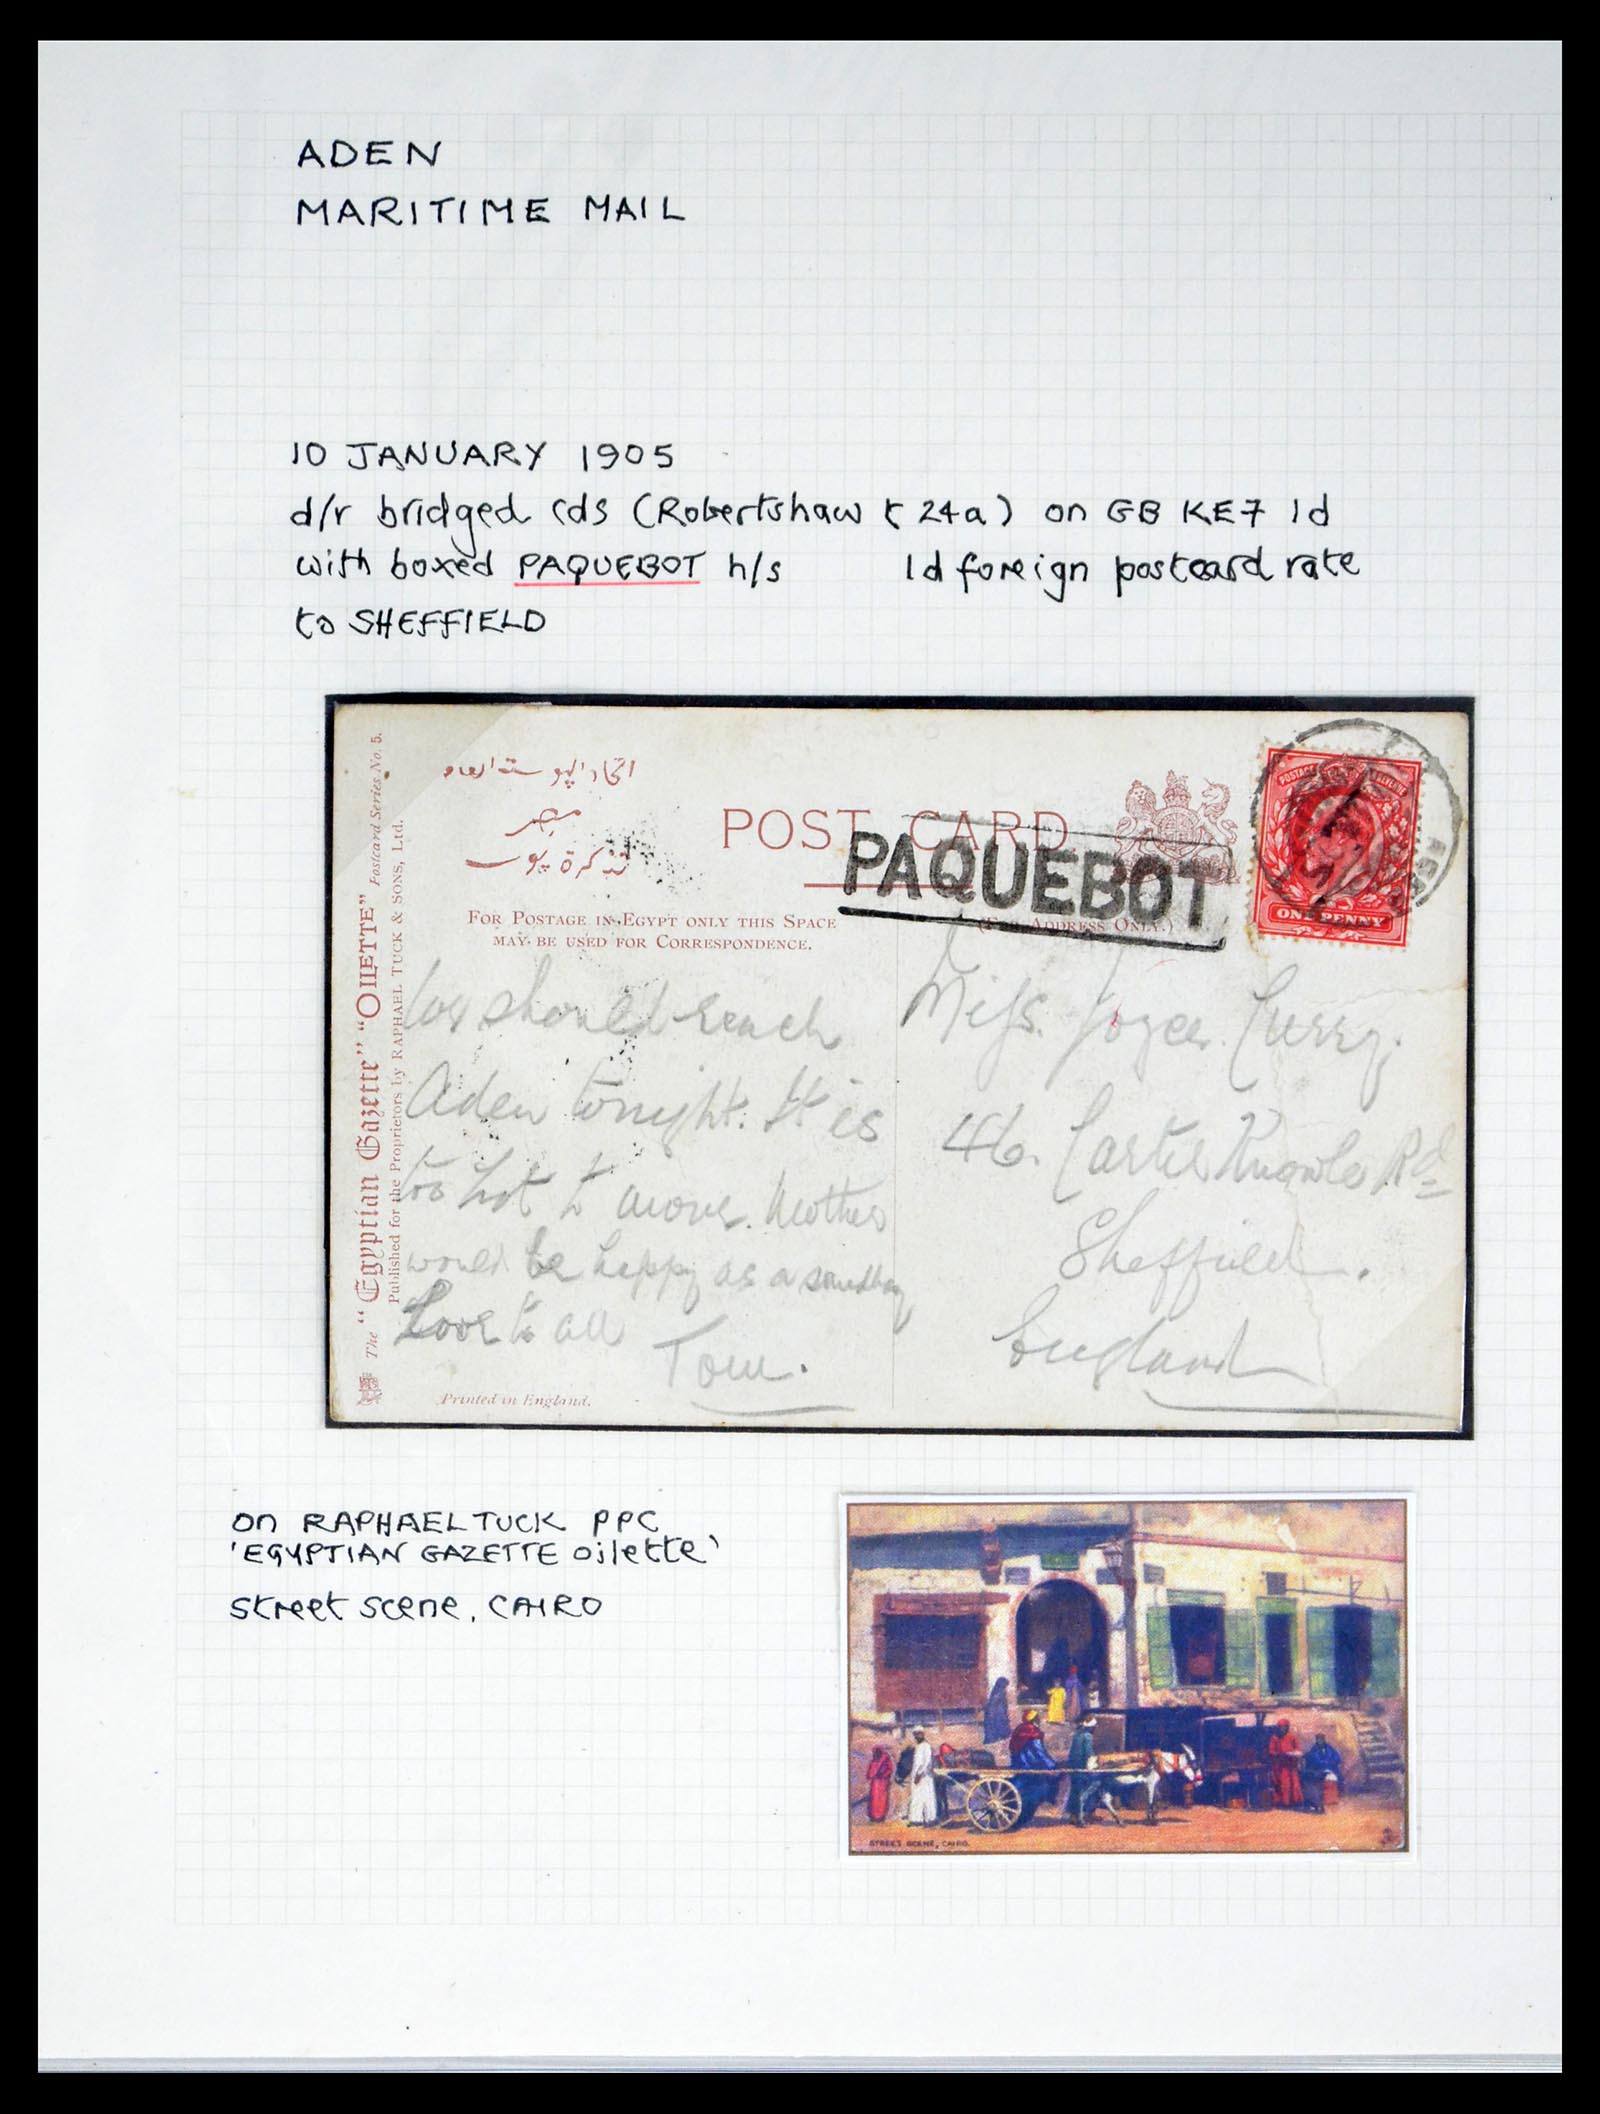 ADEN
MARITIME MAIL
10 JANUARY 1905
d/r bridged cds (Robertshaw t 24a) on GB KE7 1d
with boxed PAQUEBOT h/s 1d foreign postcard rate
to SHEFFIELD
The "Egyptian Gazette" "OILETTE" Postcard Series No. 5.
Published for the Proprietors by RAPHAEL TUCK & SONS, Ltd.
اتحاد البوستة العام
مصر
تذكرة بوستة
POST CARD
PAQUEBOT
POSTAGE REVENUE
ONE PENNY
FOR POSTAGE IN EGYPT ONLY THIS SPACE
MAY BE USED FOR CORRESPONDENCE.
(FOR ADDRESS ONLY.)
should reach
Aden tonight. It is
too hot to move. Mother
would be happy as a sandbag
Love to all
Tom.
Miss. Joyce Curry,
46. Carter Knowle Rd
Sheffield.
England
Printed in England.
on RAPHAEL TUCK PPC
'EGYPTIAN GAZETTE Oilette'
street scene, CAIRO
STREET SCENE, CAIRO.